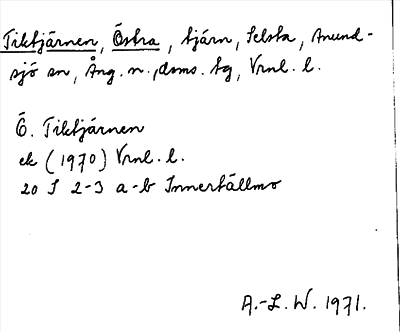 Tiktjärnen, Östra, tjärn, Selsta, Anund-
sjö sn, Ång. n., doms. tg, Vrnl. l.
Ö. Tiktjärnen
ek (1970) Vrnl. l.
20 I 2-3 a-b Innertällmo
A.-L. W. 1971.